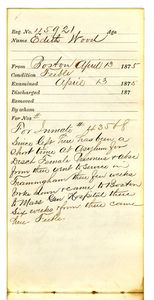 Reg. No. 45921 Age
Name Edith Wood
From Boston April 13 1875
Condition Feeble
Examined April 13 1875
Discharged 187
Removed
By whom
For Nos #
For Inmate # 43568
Since left here has been a
short time at Asylum for
Disch Female Prisoners & also
from there went to service in
Framingham there few weeks
came to Boston
to Mass Gen Hospital there
Six weeks from there came
here Feeble